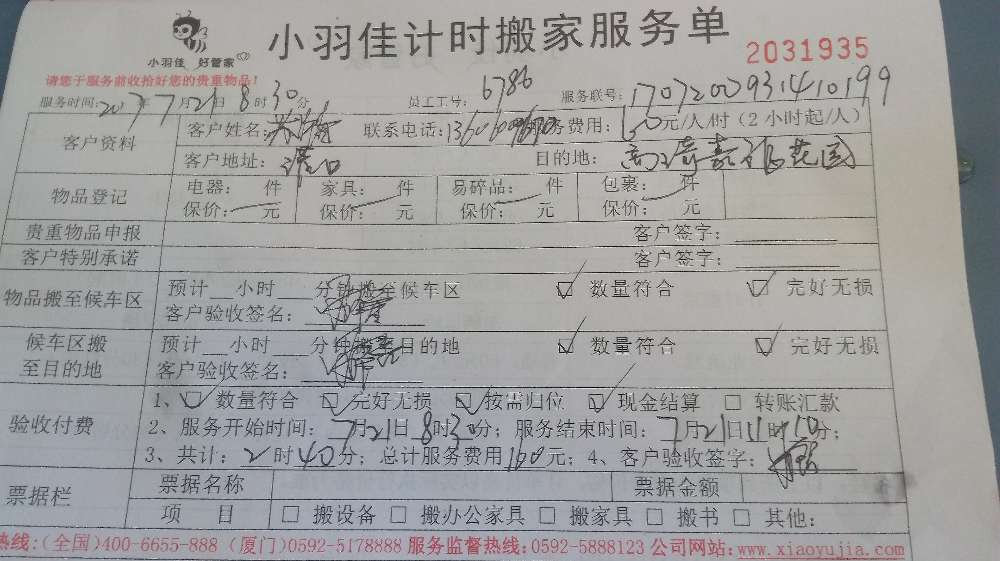 小羽佳计时搬家服务单
小羽佳 好管家
2031935
请您于服务前收拾好您的贵重物品!
服务时间:2017年7月21日8时30分 员工工号: 6786 服务联号:170720093141019​9
客户资料 客户姓名: 联系电话: 服务费用: 60元/人/时（2小时起/人）
客户地址: 目的地: 花园
物品登记 电器: 件 家具: 件 易碎品: 件 包裹: 件
保价: 元 保价: 元 保价: 元 保价: 元
贵重物品申报 客户签字:
客户特别承诺 客户签字:
物品搬至候车区 预计__小时___分钟搬至候车区 ☑ 数量符合 ☑ 完好无损
客户验收签名:
候车区搬至目的地 预计__小时___分钟搬至目的地 ☑ 数量符合 ☑ 完好无损
客户验收签名:
验收付费 1、☑ 数量符合 ☑ 完好无损 ☑ 按需归位 ☑ 现金结算 □ 转账汇款
2、服务开始时间: 7月21日8时30分; 服务结束时间: 7月21日11时10分;
3、共计: 2时40分; 总计服务费用160元; 4、客户验收签字:
票据栏 票据名称 票据金额
项 目 □ 搬设备 □ 搬办公家具 □ 搬家具 □ 搬书 □ 其他:
热线:(全国)400-6655-888 (厦门)0592-5178888 服务监督热线:0592-5888123 公司网站:www.xiaoyujia.com